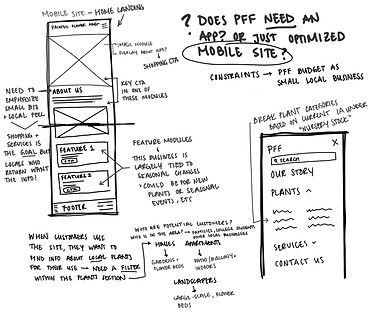 MOBILE SITE - HOME LANDING
IMAGE MODULE
OVERLAY ABOUT INFO?
SHOPPING CTA
KEY CTA
IN ONE OF
THESE MODULES
ABOUT US
NEED TO
EMPHASIZE
SMALL BIZ
+ LOCAL FEEL
SHOPPING +
SERVICES IS
THE GOAL BUT
LOCALS WHO
RETURN WANT
THE INFO!
FEATURE 1
CTA
FEATURE 2
CTA
FOOTER
FEATURE MODULES
THIS BUSINESS IS
LARGELY TIED TO
SEASONAL CHANGES
COULD BE FOR NEW
PLANTS OR SEASONAL
EVENTS, ETC
? DOES PFF NEED AN
APP? OR JUST OPTIMIZED
MOBILE SITE?
CONSTRAINTS → PFF BUDGET AS
SMALL LOCAL BUSINESS
BREAK PLANT CATEGORIES
BASED ON CURRENT IA UNDER
"NURSERY STOCK"
PFF X
SEARCH
OUR STORY
PLANTS
SERVICES
CONTACT US
WHEN CUSTOMERS USE
THE SITE, THEY WANT TO
FIND INFO ABOUT LOCAL PLANTS
FOR THEIR USE - NEED A FILTER
WITHIN THE PLANTS SECTION
WHO ARE POTENTIAL CUSTOMERS?
WHO IS IN THE AREA? → FAMILIES, COLLEGE STUDENTS
OTHER LOCAL BUSINESSES
HOMES
APARTMENTS
GARDENS,
FLOWER BEDS
PATIO/BALCONY,
INDOORS
LANDSCAPERS
LARGE-SCALE, FLOWER
BEDS